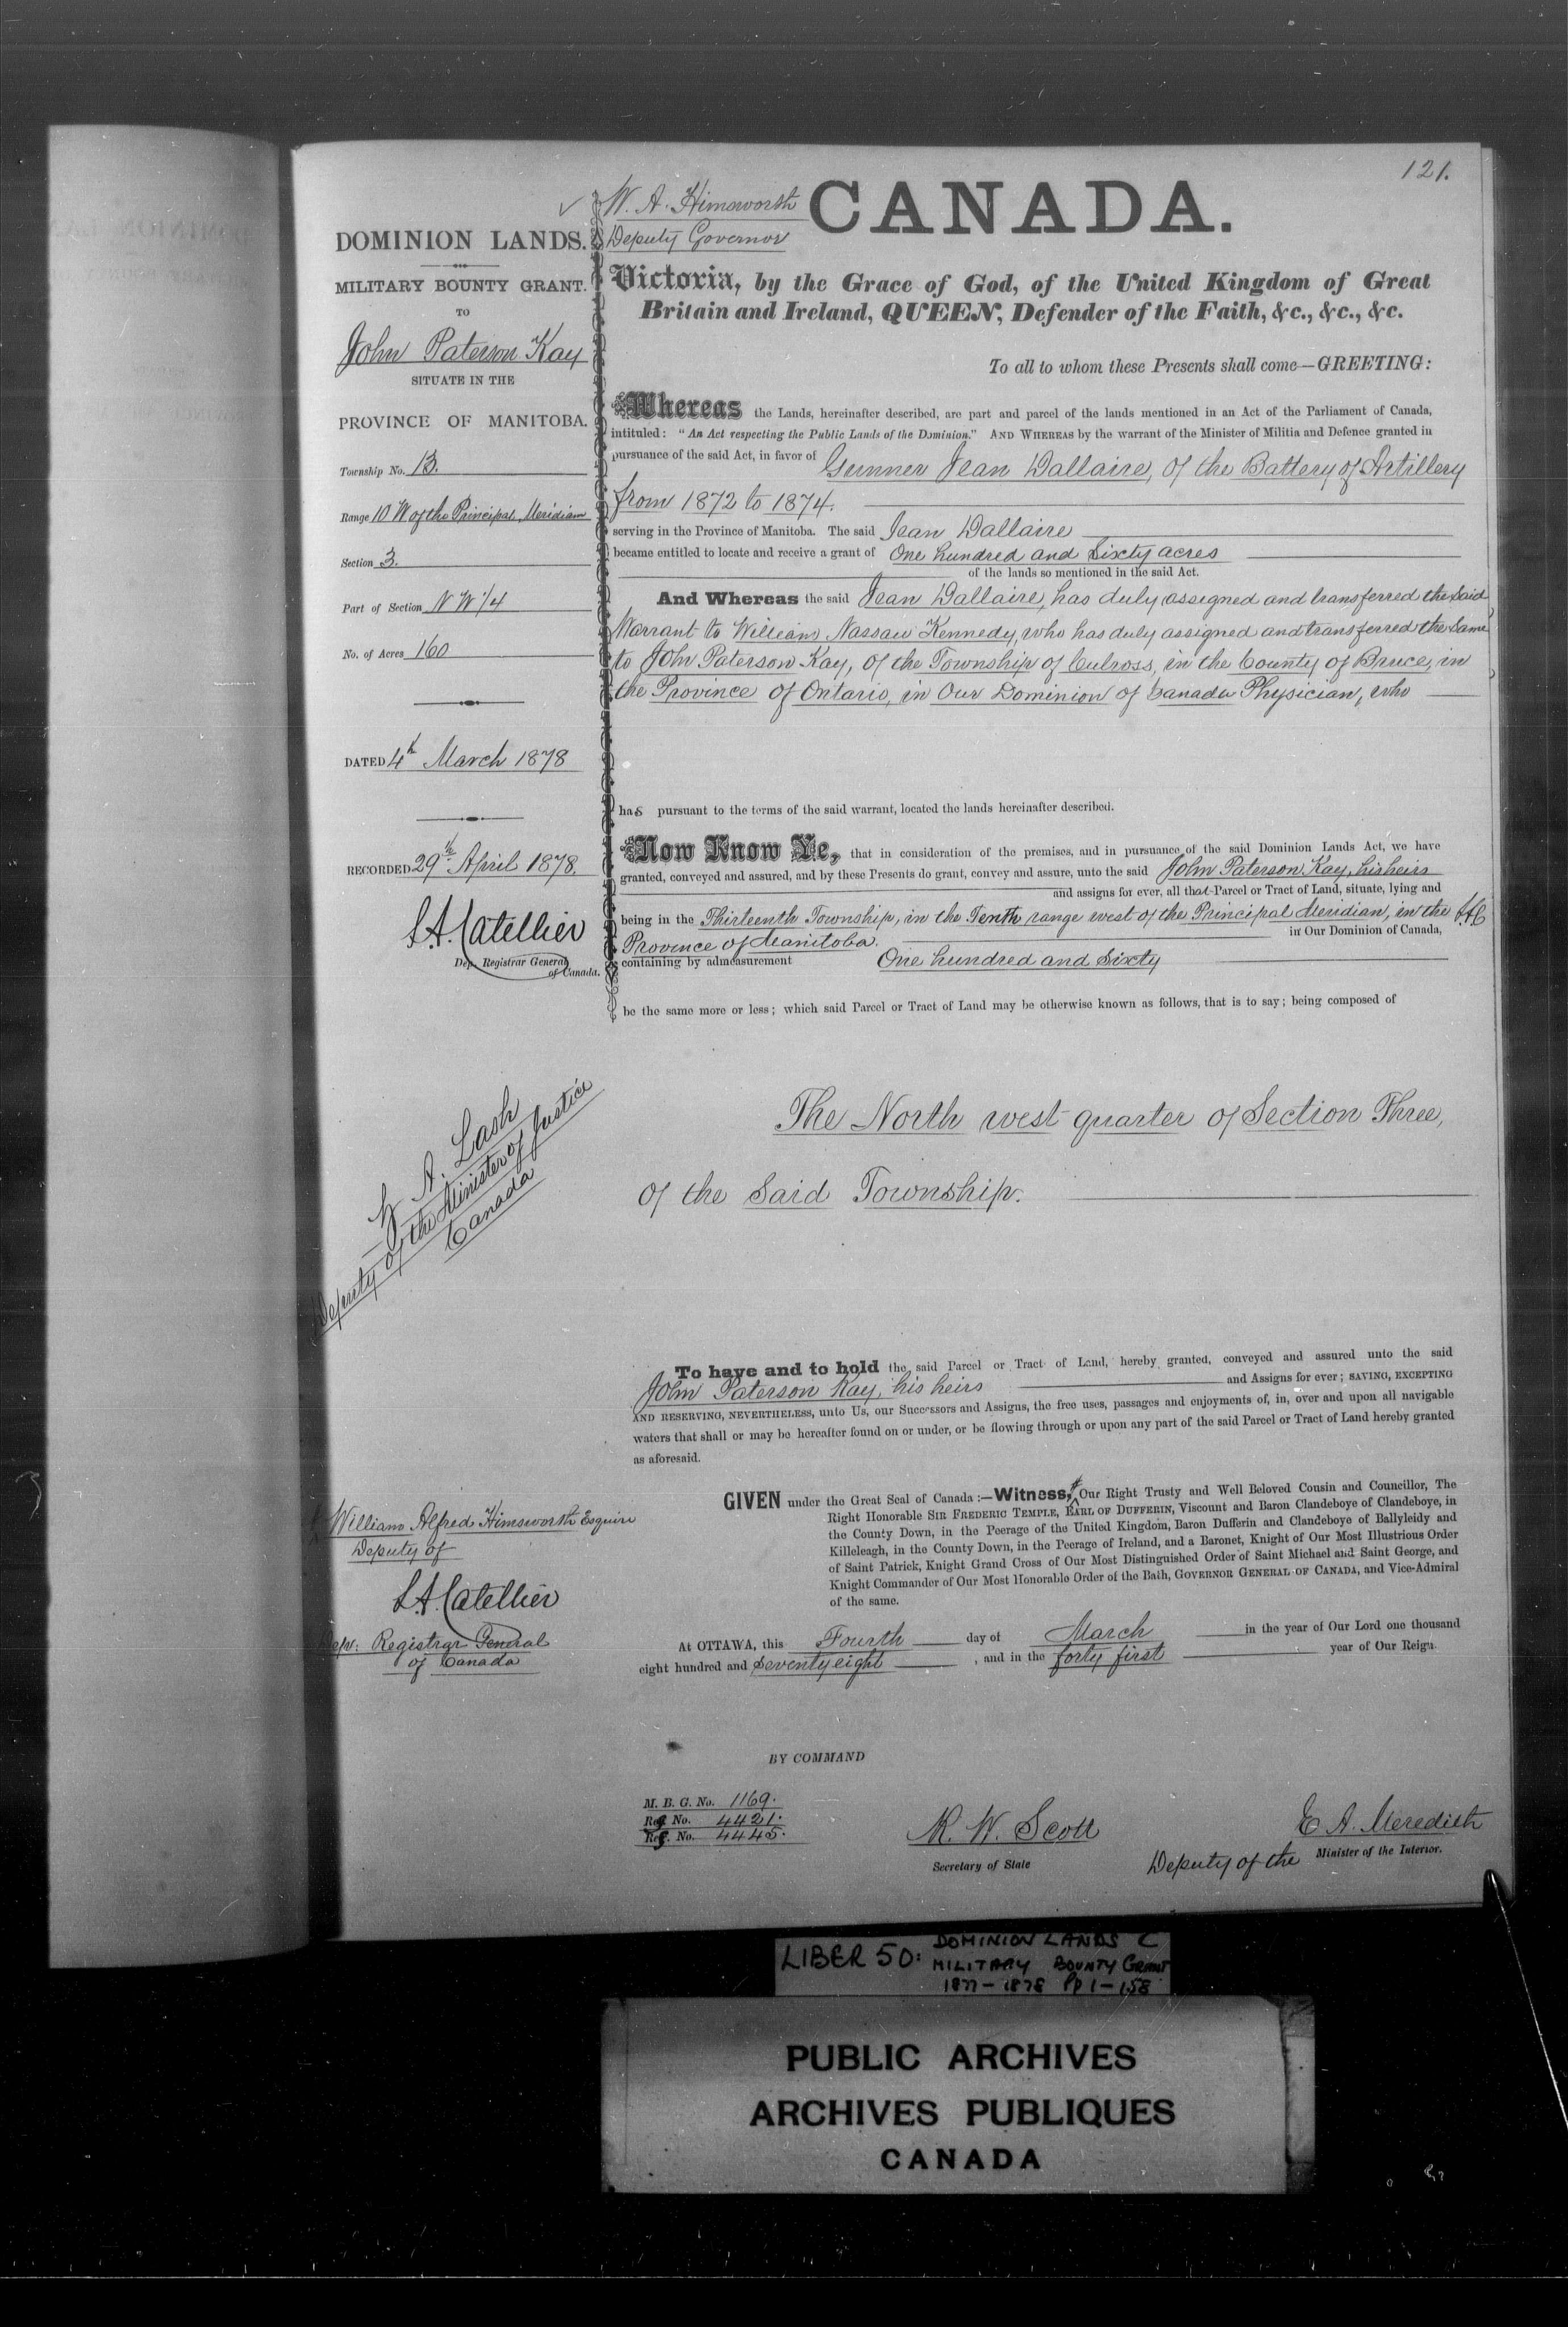 121.
W. A. Himsworth
Deputy Governor
CANADA.
DOMINION LANDS.
MILITARY BOUNTY GRANT.
TO
John Paterson Kay
SITUATE IN THE
PROVINCE OF MANITOBA.
Township No. 13.
Range 10 W of the Principal Meridian
Section 3.
Part of Section N W 1/4
No. of Acres 160
DATED 4th March 1878
RECORDED 29th April 1878.
L. A. Catellier
Dep. Registrar General
of Canada.
Victoria, by the Grace of God, of the United Kingdom of Great
Britain and Ireland, QUEEN, Defender of the Faith, &c., &c., &c.
To all to whom these Presents shall come—GREETING:
Whereas the Lands, hereinafter described, are part and parcel of the lands mentioned in an Act of the Parliament of Canada,
intituled: "An Act respecting the Public Lands of the Dominion." AND WHEREAS by the warrant of the Minister of Militia and Defence granted in
pursuance of the said Act, in favor of Gunner Jean Dallaire, of the Battery of Artillery
from 1872 to 1874.
serving in the Province of Manitoba. The said Jean Dallaire
became entitled to locate and receive a grant of One hundred and Sixty acres
of the lands so mentioned in the said Act.
And Whereas the said Jean Dallaire, has duly assigned and transferred the Said
Warrant to William Nassau Kennedy, who has duly assigned and transferred the Same
to John Paterson Kay, of the Township of Culross, in the County of Bruce, in
the Province of Ontario, in Our Dominion of Canada Physician, who
has pursuant to the terms of the said warrant, located the lands hereinafter described.
Now Know Ye, that in consideration of the premises, and in pursuance of the said Dominion Lands Act, we have
granted, conveyed and assured, and by these Presents do grant, convey and assure, unto the said John Paterson Kay, his heirs
and assigns for ever, all that Parcel or Tract of Land, situate, lying and
being in the Thirteenth Township, in the Tenth range west of the Principal Meridian, in the
Province of Manitoba. in Our Dominion of Canada,
containing by admeasurement One hundred and Sixty
be the same more or less; which said Parcel or Tract of Land may be otherwise known as follows, that is to say; being composed of
The North west quarter of Section Three,
of the Said Township.
A. Lash
Deputy of the Minister of Justice
Canada
To have and to hold the said Parcel or Tract of Land, hereby granted, conveyed and assured unto the said
John Paterson Kay, his heirs and Assigns for ever; SAVING, EXCEPTING
AND RESERVING, NEVERTHELESS, unto Us, our Successors and Assigns, the free uses, passages and enjoyments of, in, over and upon all navigable
waters that shall or may be hereafter found on or under, or be flowing through or upon any part of the said Parcel or Tract of Land hereby granted
as aforesaid.
William Alfred Himsworth Esquire
Deputy of
L. A. Catellier
Dep. Registrar General
of Canada
GIVEN under the Great Seal of Canada:—Witness, Our Right Trusty and Well Beloved Cousin and Councillor, The
Right Honorable SIR FREDERIC TEMPLE, EARL OF DUFFERIN, Viscount and Baron Clandeboye of Clandeboye, in
the County Down, in the Peerage of the United Kingdom, Baron Dufferin and Clandeboye of Ballyleidy and
Killeleagh, in the County Down, in the Peerage of Ireland, and a Baronet, Knight of Our Most Illustrious Order
of Saint Patrick, Knight Grand Cross of Our Most Distinguished Order of Saint Michael and Saint George, and
Knight Commander of Our Most Honorable Order of the Bath, GOVERNOR GENERAL OF CANADA, and Vice-Admiral
of the same.
At OTTAWA, this Fourth day of March in the year of Our Lord one thousand
eight hundred and Seventy eight, and in the forty first year of Our Reign.
BY COMMAND
M. B. G. No. 1169.
Ref. No. 4421.
Ref. No. 4445.
R. W. Scott
Secretary of State
E A. Meredith
Deputy of the Minister of the Interior.
LIBER 50: DOMINION LANDS C
MILITARY BOUNTY GRANT
1877-1878 Pp 1-158
PUBLIC ARCHIVES
ARCHIVES PUBLIQUES
CANADA